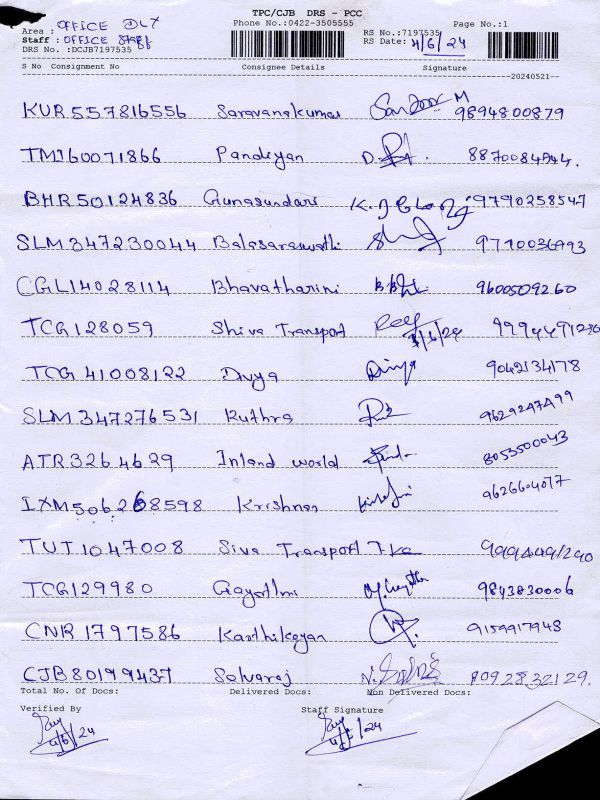 TPC/CJB DRS - PCC
Area : OFFICE DLX Phone No.:0422-3505555 Page No.:1
Staff : OFFICE STAFF RS No.:7197535
DRS No. :DCJB7197535 RS Date: 4/6/24
S No Consignment No Consignee Details Signature
20240521
KUR557816556 Saravanakumar M 9894800879
TMJ60071866 Pandiyan 8870084944.
BHR50124836 Gunasundari 9790258547
SLM347230044 Balasaraswathi
CGL14028114 Bhavatharini 9600509260
TCG128059 Shiva Transport
TCG 41008122 Divya Divya 9042134178
SLM347276531 Ruthra 9629247499
ATR3264629 Inland world 8053500043
IXM506268598 Krishnan 9626604077
TUT1047008 Siva Transport
TCG129980 Gayathri 9843830006
CNR1797586 Karthikeyan 9159917948
CJB80199437 Selvaraj 8092832129.
Total No. Of Docs: Delivered Docs: Non Delivered Docs:
Verified By Staff Signature
4/6/24 4/6/24